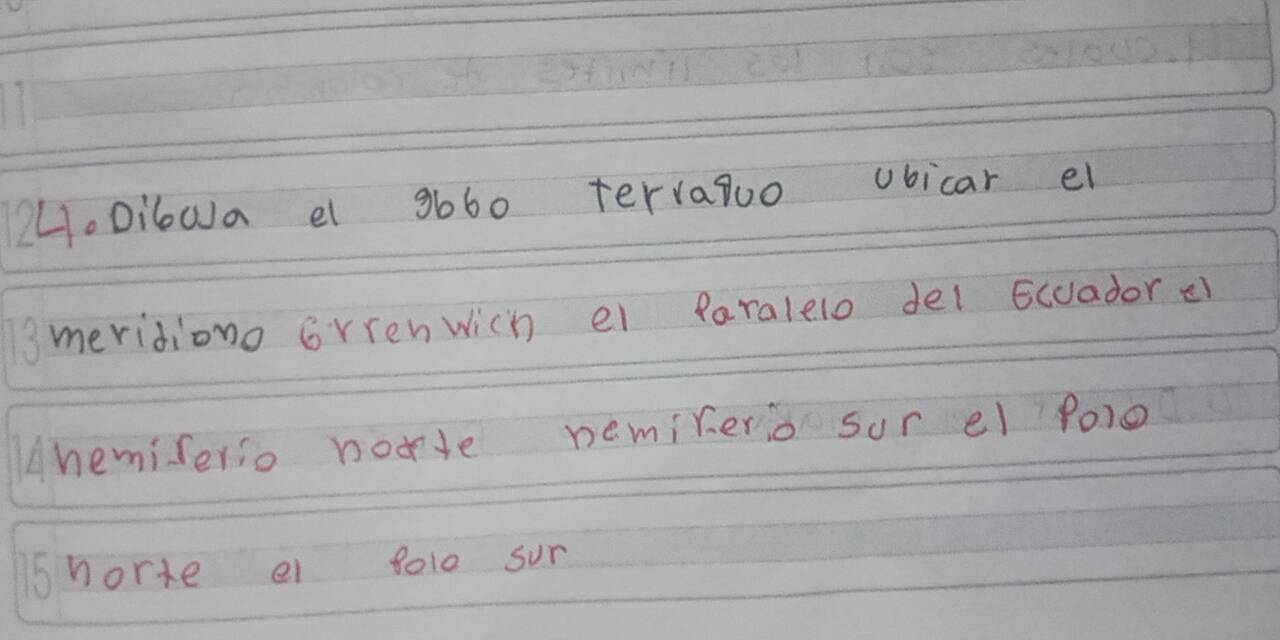 11
12 4. Dibuja el gbbo terraquo ubicar el
13 meridiono Grrenwich el Paralelo del Ecuador el
14 hemiferio norte hemiferio sur el Polo
15 norte el Polo sur